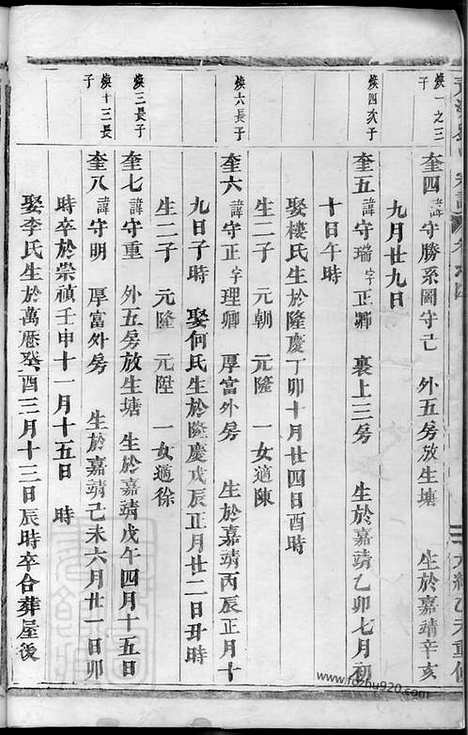 煥一之三子
奎四 諱守勝系圖守己 外五房放生塘 生於嘉靖辛亥
九月廿九日
煥四次子
奎五 諱守瑞字正卿 裏上三房 生於嘉靖乙卯七月初
十日午時
娶樓氏生於隆慶丁卯十月廿四日酉時
生二子 元朝 元隆 一女適陳
煥六長子
奎六 諱守正字理卿 厚富外房 生於嘉靖丙辰正月十
九日子時 娶何氏生於隆慶戊辰正月廿二日丑時
生二子 元隆 元陞 一女適徐
煥三長子
奎七 諱守重 外五房放生塘 生於嘉靖戊午四月十五
煥十三長子
奎八 諱守明 厚富外房 生於嘉靖己未六月廿一日卯
時卒於崇禎壬申十一月十五日 時
娶李氏生於萬曆癸酉三月十三日辰時卒合葬屋後
www.fozhu920.com